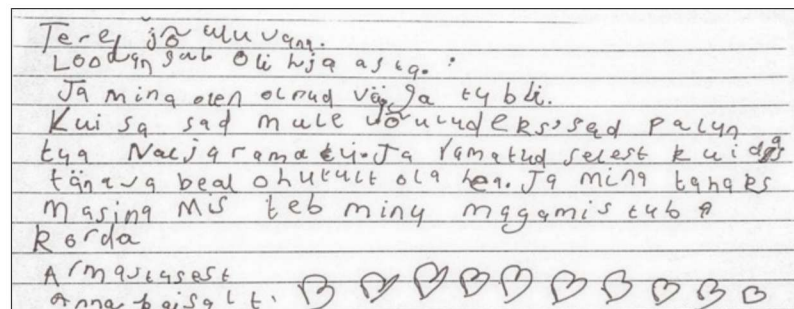 Terej jõuluvana.
Loodan sul oli hja asta.
Ja mina olen olnud väga tubli.
Kui sa sad mule jõuludeks, sad palun
tua Naljaramatu. Ja ramatud selest kuidas
tänava beal ohutult ola hea. Ja mina tahaks
masina mis teb minu magamis tuba
korda
Armastusest
Anna